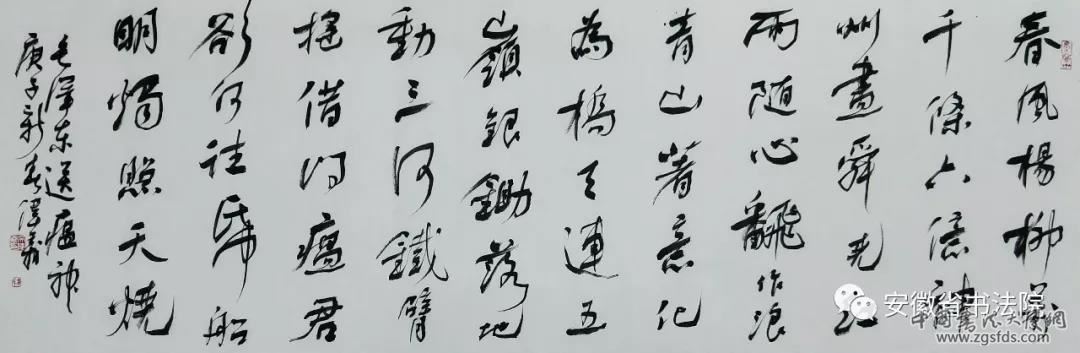 春風楊柳萬
千條六億神
州盡舜尧红
雨随心飜作浪
青山著意化
為橋天連五
嶺銀鋤落地
動三河鐵臂
摇借问瘟君
欲何往纸船
明燭照天燒
毛澤东送瘟神
庚子新春
安徽省书法院
www.zgsfds.com